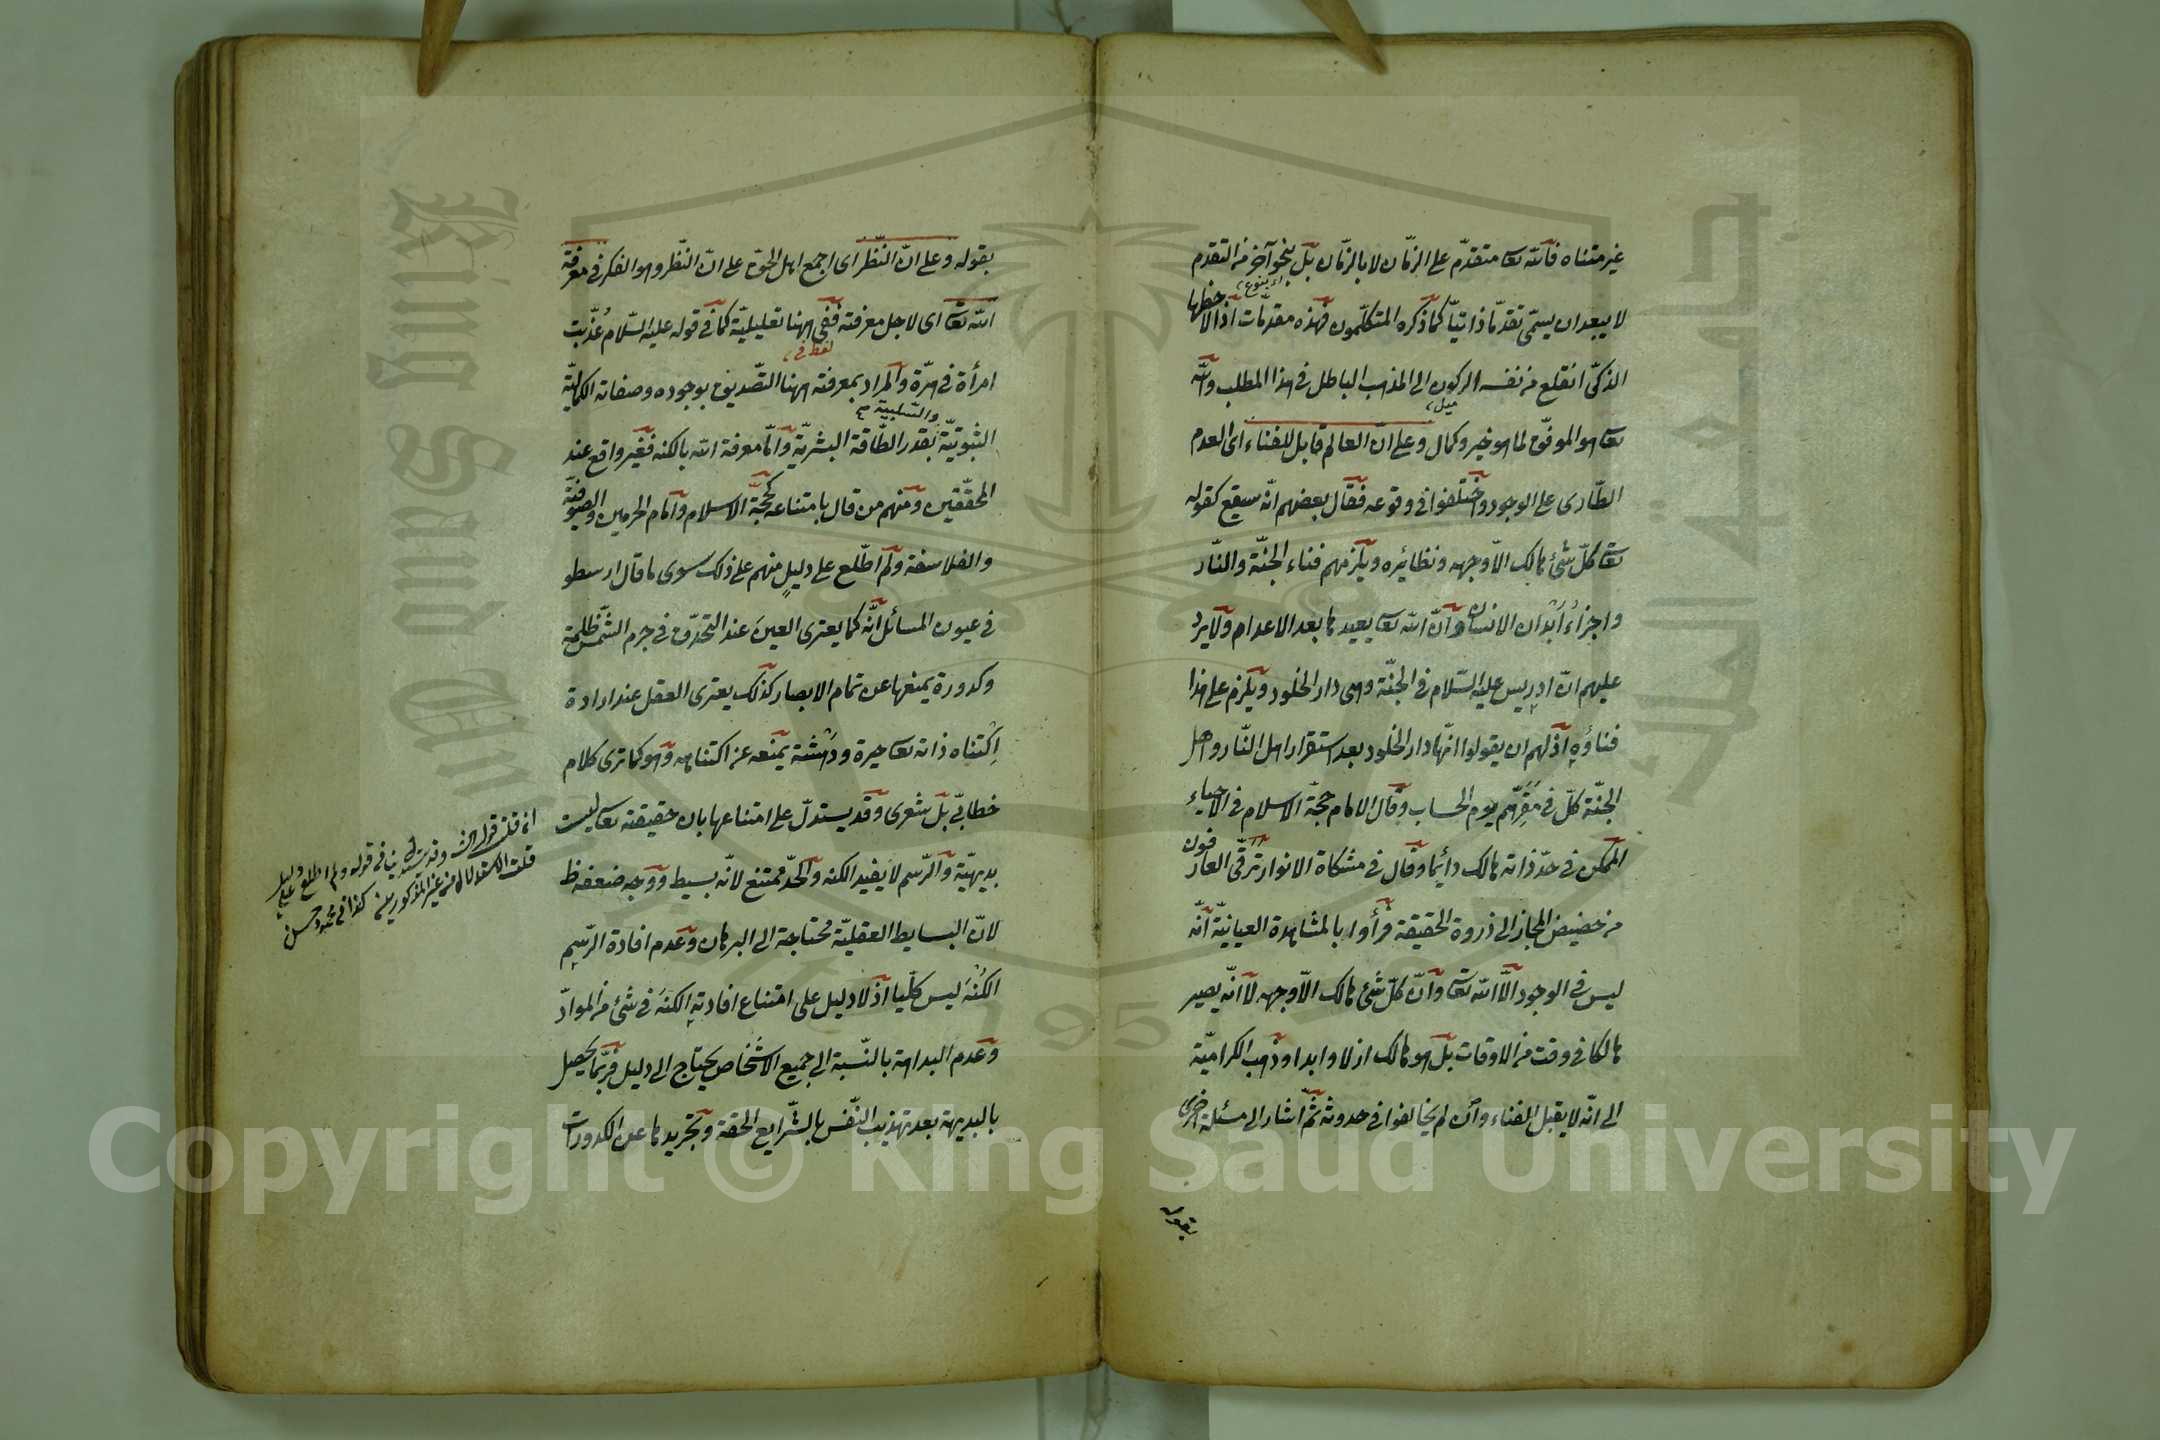 غير متناه فالله تعا متقدّم على الزمان لا بالزمان بل بنحو آخر من التقدم
اى بنوع
لا يبعد ان يسمّى تقدّما ذاتيّا كما ذكره المتكلّمون فهذه مقدّمات اذا لاحظها
الذكىّ انقلع من نفسه الركون الى المذهب الباطل فى هذا المطلب والله
ميل
تعا هو الموفّق لما هو خير وكمال وعلى انّ العالم قابل للفناء اى العدم
الطّارى على الوجود واختلفوا فى وقوعه فقال بعضهم انّه سيقع كقوله
تعا كلّ شئ هالك الّا وجهه ونظائره ويلزمهم فناء الجنّة والنّار
واجزاء ابدان الانسان وانّ الله تعا يعيدها بعد الاعدام ولا يرد
عليهم انّ ادريس عليه السّلام فى الجنّة وهى دار الخلود ويلزم على هذا
فناؤه اذ لهم ان يقولوا انّها دار الخلود بعد استقرار اهل النّار واهل
الجنّة كلّ فى مقرّهم يوم الحساب وقال الامام حجّة الاسلام فى الاحياء
الممكن فى حدّ ذاته هالك دائما وقال فى مشكاة الانوار ترقّى العارفون
من حضيض المجاز الى ذروة الحقيقة فرأوا بالمشاهدة العيانيّة انّه
ليس فى الوجود الّا الله تعا وانّ كلّ شئ هالك الّا وجهه لا انّه يصير
هالكا فى وقت من الاوقات بل هو هالك ازلا وابدا وذهب الكراميّة
الى انّه لا يقبل الفناء وان لم يخالفوا فى حدوثه ثمّ اشار الى مسئلة اخرى
بقوله
بقوله وعلى انّ النّظر اى اجمع اهل الحقّ على انّ النّظر وهو الفكر فى معرفة
الله تعا اى لاجل معرفته ففى ههنا تعليليّة كما فى قوله عليه السّلام عُذّبت
لفظ فى
امرأة فى هرّة والمراد بمعرفته ههنا التّصديق بوجوده وصفاته الكماليّة
والسّلبية
الثبوتيّة بقدر الطّاقة البشريّة وامّا معرفة الله بالكنه فغير واقع عند
المحقّقين ومنهم من قال بامتناعه كحجّة الاسلام وامام الحرمين والصوفيّة
والفلاسفة ولم اطّلع على دليلٍ منهم على ذلك سوى ما قال ارسطو
فى عيون المسائل انّه كما يعترى العينَ عند التحدّق فى جرم الشّمس ظلمة
وكدورة يمنعها عن تمام الابصار كذلك يعترى العقل عند ارادة
اِكتناه ذاته تعا حيرة ودَهْشة يمنعه عن اكتناهه وهو كما ترى كلام
خطابىّ بل شعرى وقد يستدلّ على امتناعها بان حقيقته تعا ليست
بديهيّة والرّسم لا يفيد الكنه والحدّ ممتنع لانّه بسيط ووجه ضعفه ظ
لانّ البسايط العقليّة محتاجة الى البرهان وعدم افادة الرّسمِ
الكُنْهَ ليس كلّيا اذ لا دليل على امتناع افادتهِ الكنهَ فى شئ من الموادّ
وعدم البداهة بالنّسبة الى جميع الاشخاص يحتاج الى دليل فربّما يحصل
بالبديهة بعد تهذيب النّفس بالشّرايع الحقة وتجريدها عن الكدورات
King Saud University
1957
Copyright © King Saud University